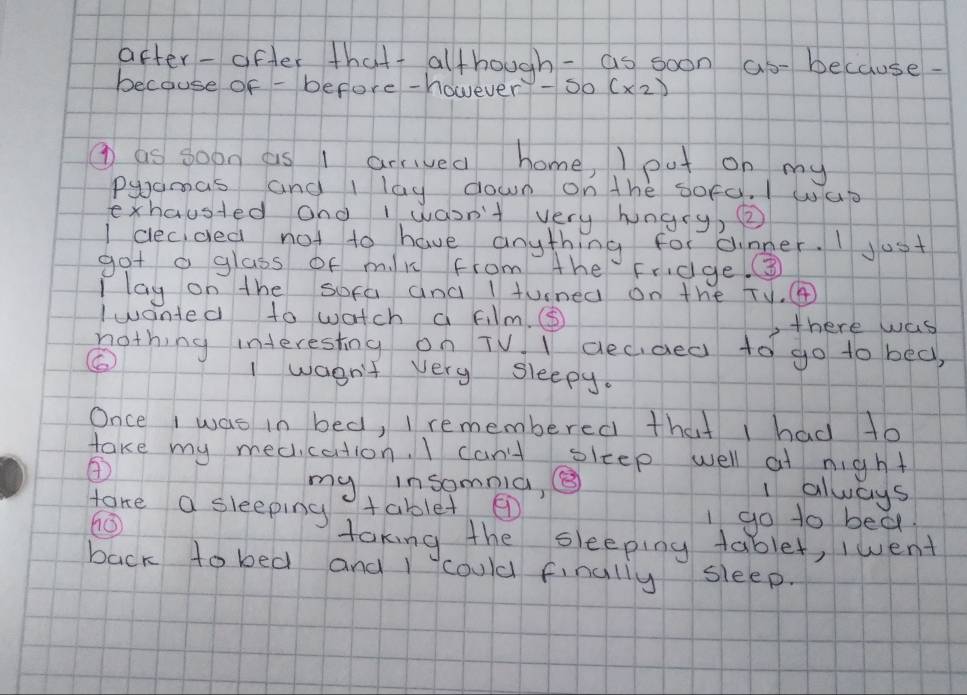 after - after that - although - as soon as - because -
because of - before - however - so (x2)
① as soon as I arrived home, I put on my
pyjamas and I lay down on the sofa. I was
exhausted and I wasn't very hungry, ②
I decided not to have anything for dinner. I just
got a glass of milk from the fridge. ③
I lay on the sofa and I turned on the TV. ④
I wanted to watch a film. ⑤ , there was
nothing interesting on TV. I decided to go to bed,
⑥ I wasn't very sleepy.
Once I was in bed, I remembered that I had to
take my medication. I can't sleep well at night
⑦ my insomnia, ⑧ I always
take a sleeping tablet ⑨ I go to bed.
⑩ taking the sleeping tablet, I went
back to bed and I could finally sleep.